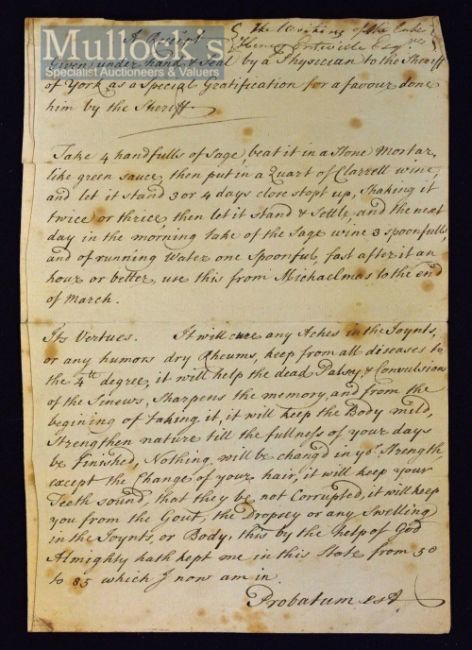 Mullock's
Specialist Auctioneers & Valuers
A Receipt
the writing of the
Esqr.
Given under hand & seal by a Physician to the Sheriff
of York as a Special Gratification for a favour done
him by the Sheriff
Take 4 handfulls of Sage, beat it in a Stone Mortar,
like green sauce, then put in a Quart of Clarrett wine,
and let it stand 3 or 4 days close stopt up, Shaking it
twice or thrice then let it Stand & Settle, and the next
day in the morning take of the Sage wine 3 spoonfulls,
and of running Water one Spoonful, fast after it an
hour or better, use this from Michaelmas to the end
of March.
Its Vertues. It will cure any Aches in the Joynts,
or any humors dry Rheums, keep from all diseases to
the 4th degree, it will help the dead Palsy, & Convulsions
of the Sinews, Sharpens the memory, and from the
begining of taking it, it will keep the Body mild,
Strengthen nature till the fullness of your days
be finished, Nothing will be changd in yor. Strength,
except the Change of your hair, it will keep your
Teeth sound, that they be not Corrupted, it will keep
you from the Gout, the Dropsey or any Swelling
in the Joynts, or Body, this by the help of God
Almighty hath kept me in this State from 50
to 85 which I now am in.
Probatum est.